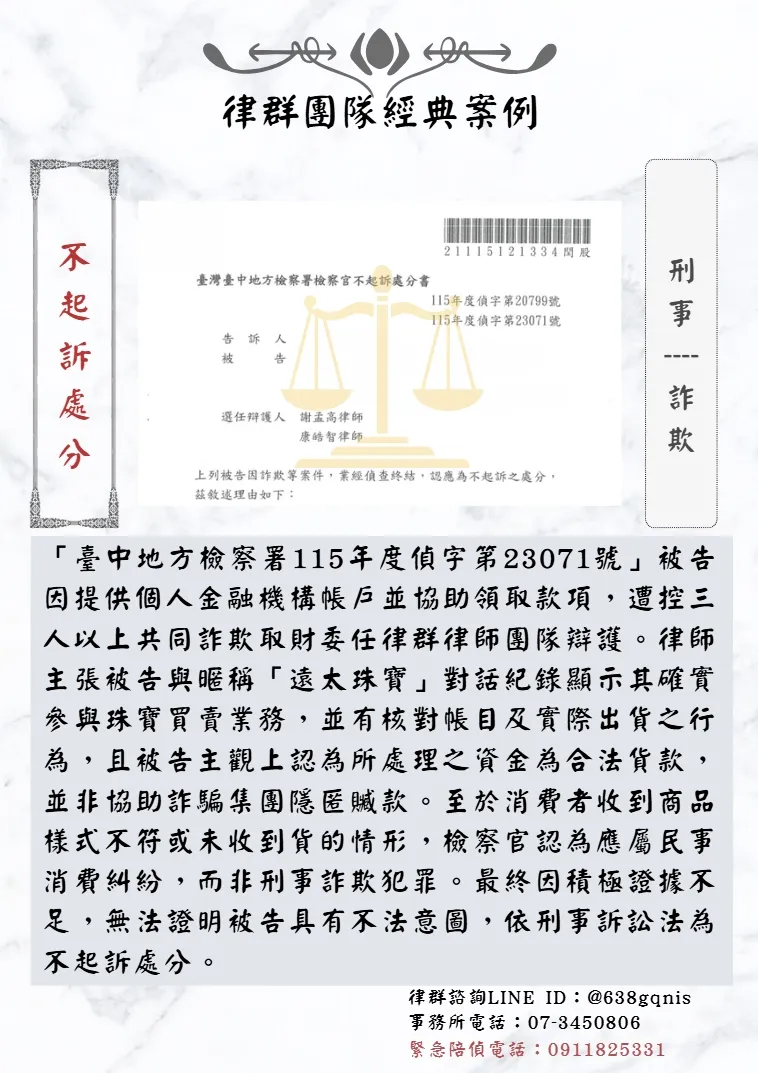 律群團隊經典案例
不起訴處分
21115121334閱股
臺灣臺中地方檢察署檢察官不起訴處分書
115年度偵字第20799號
115年度偵字第23071號
告訴人
被告
選任辯護人 謝孟高律師
康皓智律師
上列被告因詐欺等案件，業經偵查終結，認應為不起訴之處分，
茲敘述理由如下：
刑事----詐欺
「臺中地方檢察署115年度偵字第23071號」被告
因提供個人金融機構帳戶並協助領取款項，遭控三
人以上共同詐欺取財委任律群律師團隊辯護。律師
主張被告與暱稱「遠太珠寶」對話紀錄顯示其確實
參與珠寶買賣業務，並有核對帳目及實際出貨之行
為，且被告主觀上認為所處理之資金為合法貨款，
並非協助詐騙集團隱匿贓款。至於消費者收到商品
樣式不符或未收到貨的情形，檢察官認為應屬民事
消費糾紛，而非刑事詐欺犯罪。最終因積極證據不
足，無法證明被告具有不法意圖，依刑事訴訟法為
不起訴處分。
律群諮詢LINE ID：@638gqnis
事務所電話：07-3450806
緊急陪偵電話：0911825331